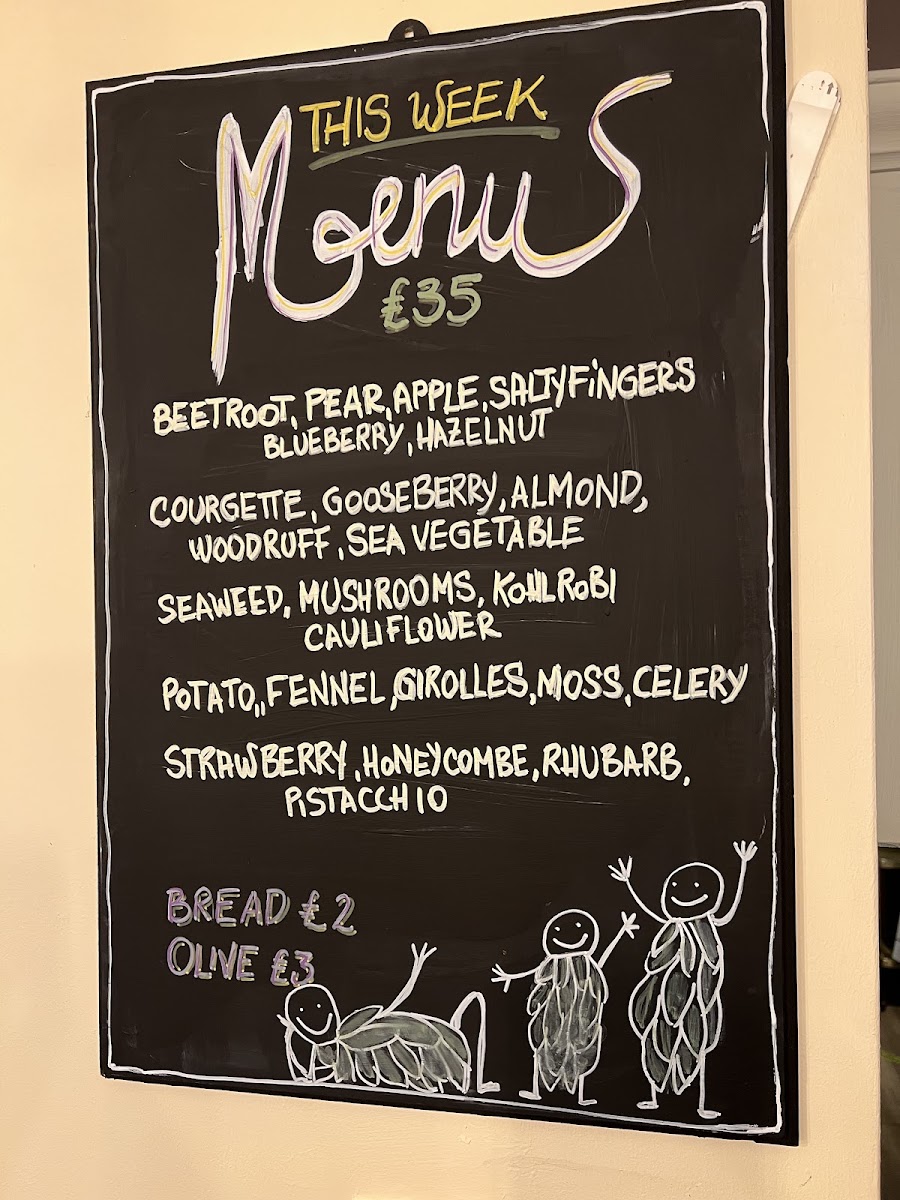 THIS WEEK
MoenuS
£35
BEETROOT, PEAR, APPLE, SALTYFiNGERS
BLUEBERRY, HAZELNUT
COURGETTE, GOOSEBERRY, ALMOND,
WOODRUFF, SEA VEGETABLE
SEAWEED, MUSHROOMS, KOHLROBI
CAULIFLOWER
POTATO,, FENNEL, GIROLLES, MOSS, CELERY
STRAWBERRY, HONEYCOMBE, RHUBARB,
PiSTACCHIO
BREAD £2
OLIVE £3